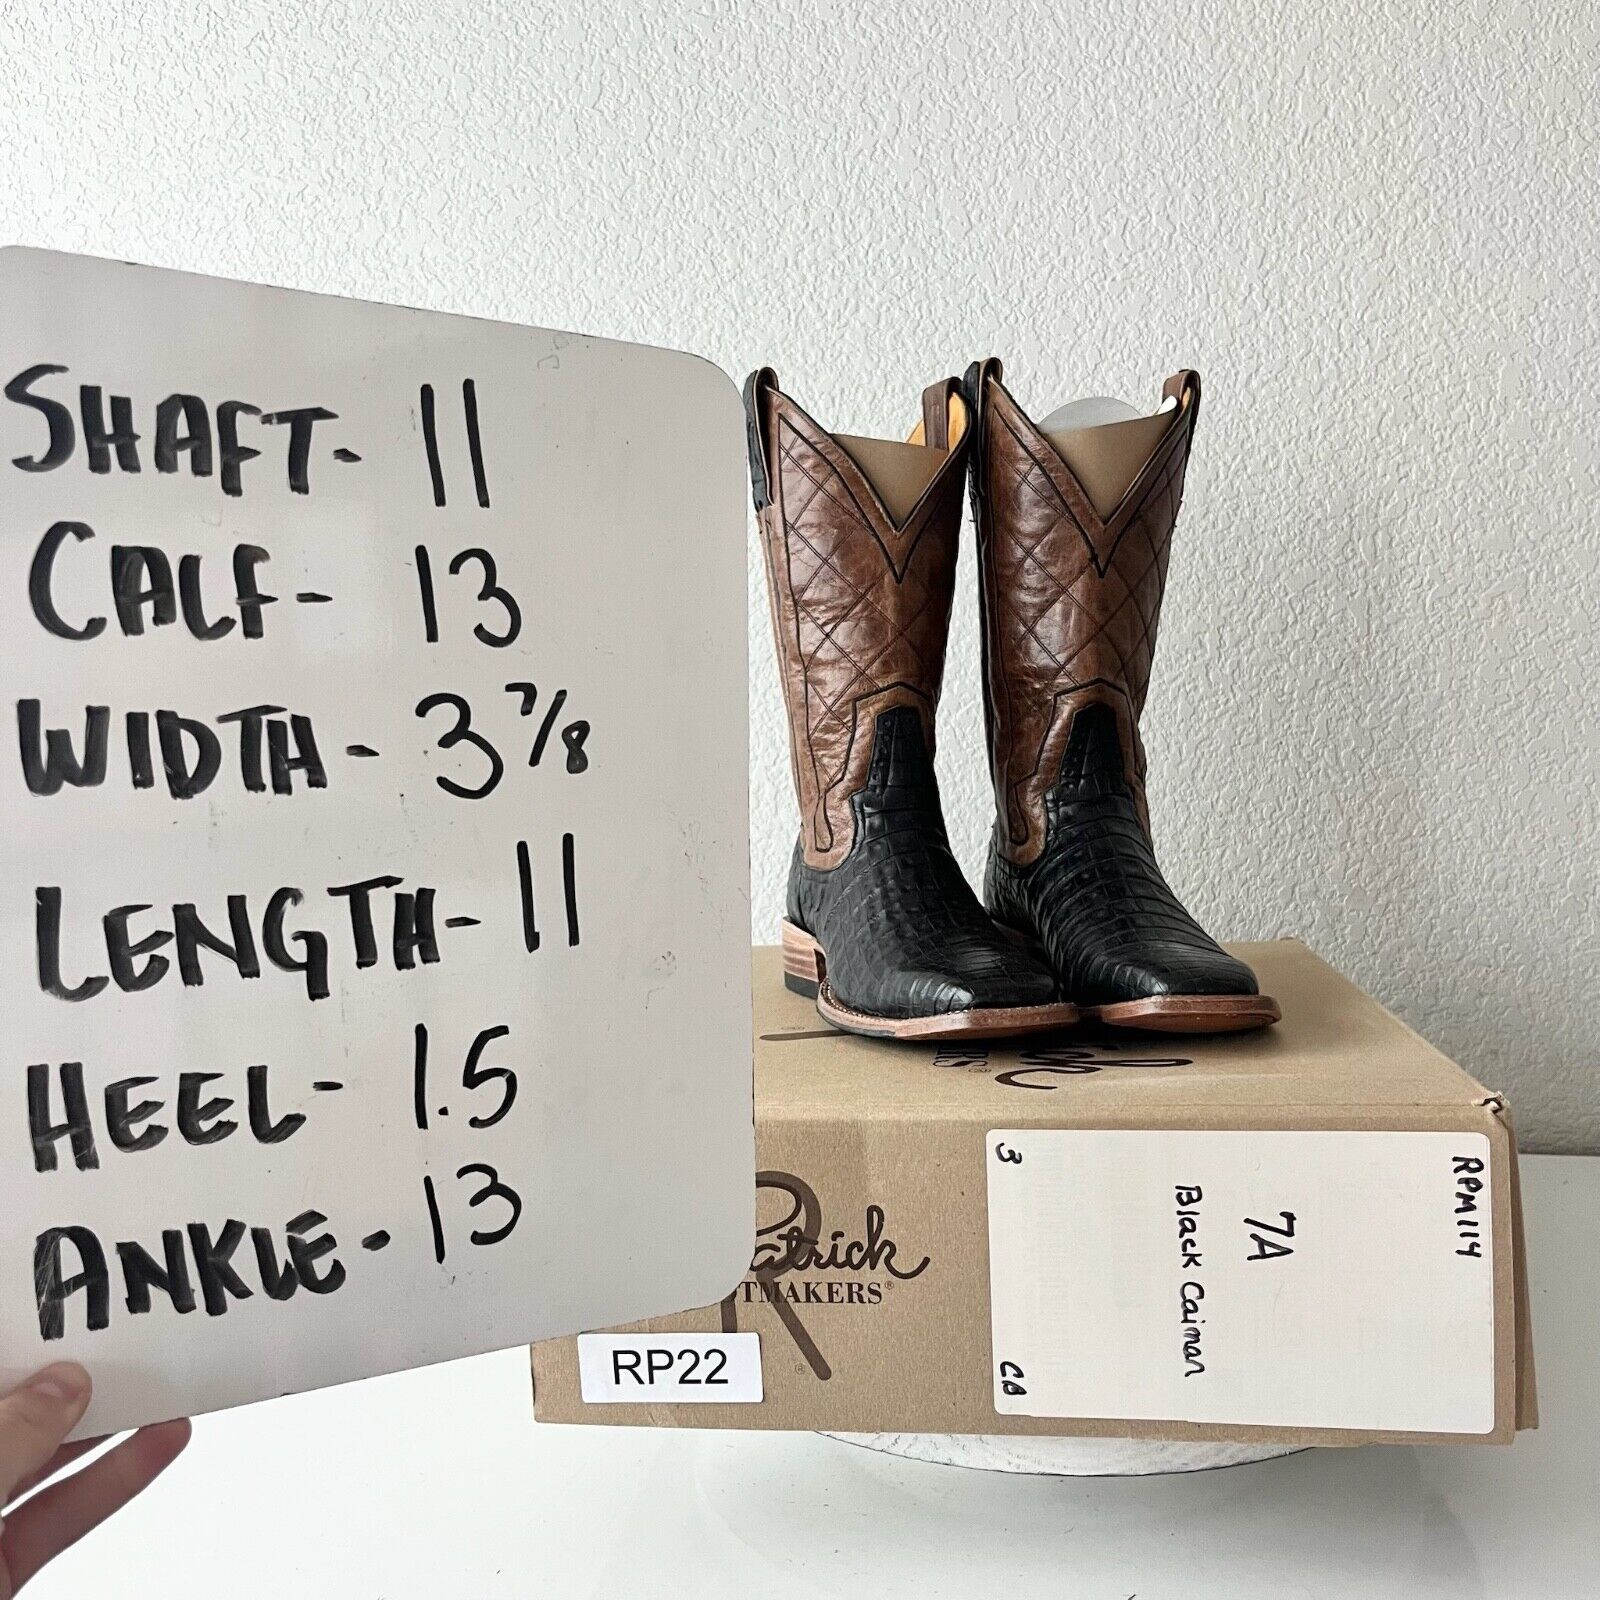 SHAFT- 11
CALF- 13
WIDTH- 3 7/8
LENGTH- 11
HEEL- 1.5
ANKLE- 13
RPM114
7A
Black Caiman
3
CB
atrick
TMAKERS®
R
®
RP22